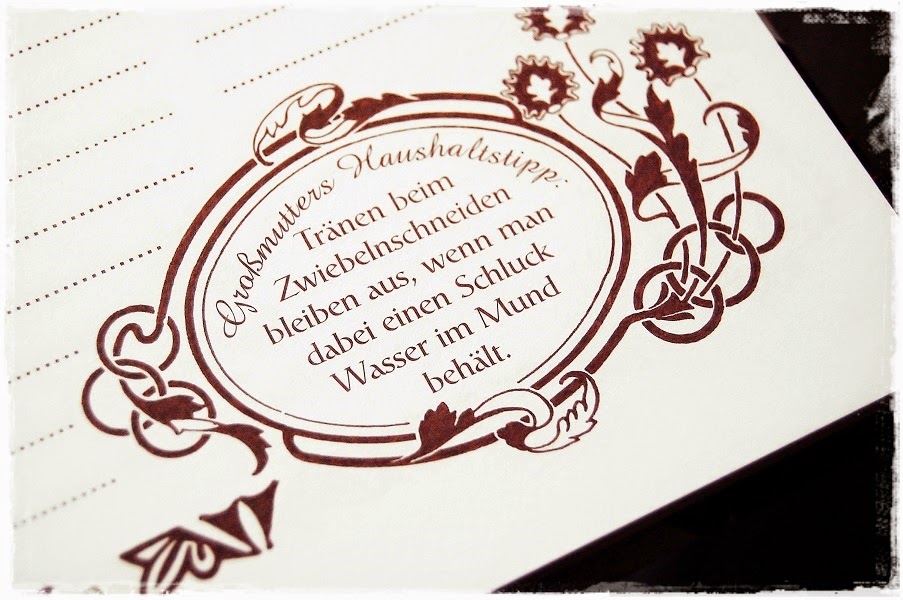 Großmutters Haushaltstipp:
Tränen beim
Zwiebelnschneiden
bleiben aus, wenn man
dabei einen Schluck
Wasser im Mund
behält.